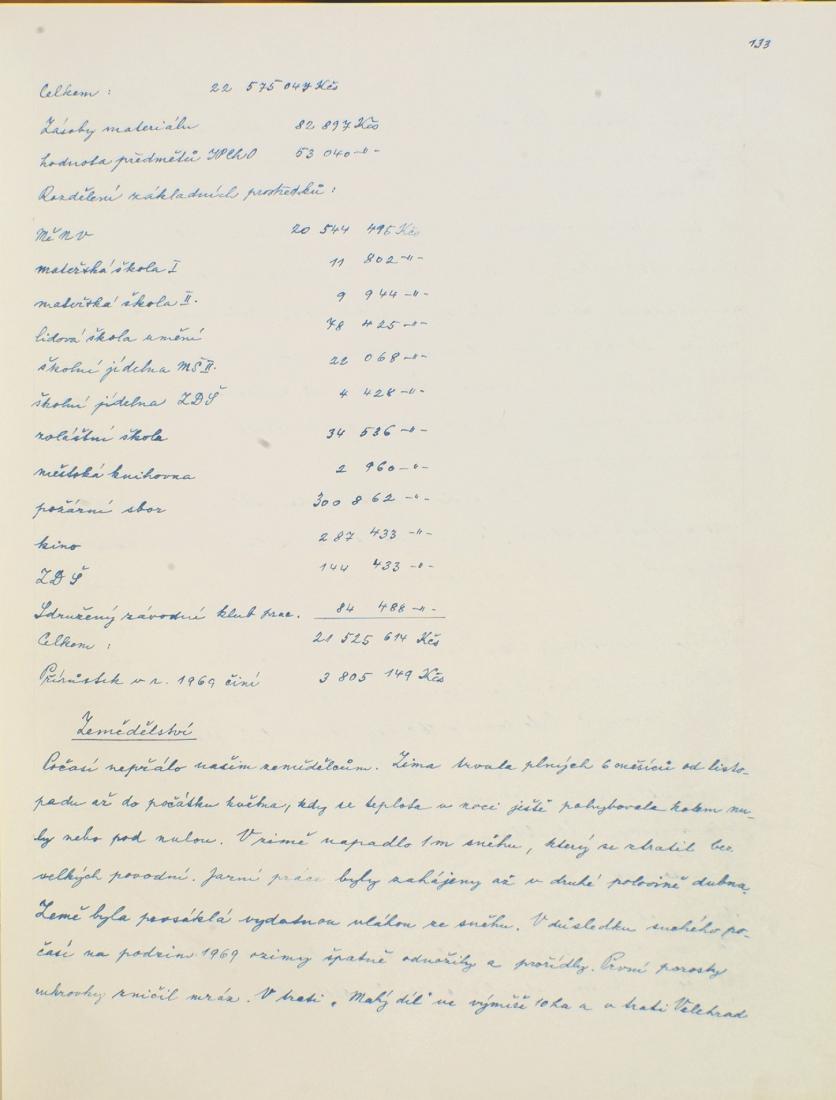 133
Celkem : 22 575 047 Kčs
Zásoby materiálu 82 897 Kčs
hodnota předmětů 53 040 -"-
Rozdělení základních prostředků :
MěNV 20 544 495 Kčs
mateřská škola I 11 802 -"-
mateřská škola II. 9 944 -"-
lidová škola umění 78 425 -"-
školní jídelna MŠ II. 22 068 -"-
školní jídelna ZDŠ 4 428 -"-
zvláštní škola 34 536 -"-
městská knihovna 2 960 -"-
požární sbor 300 862 -"-
kino 287 433 -"-
ZDŠ 144 433 -"-
Sdružený závodní klub prac. 84 488 -"-
Celkem : 21 525 614 Kčs
Přírůstek v r. 1969 činí 3 805 149 Kčs
Zemědělství
Počasí nepřálo našim zemědělcům. Zima trvala plných 6 měsíců od listo-
padu až do počátku května, kdy se teplota v noci ještě pohybovala kolem nu-
ly nebo pod nulou. V zimě napadlo 1m sněhu, který se ztratil bez
velkých povodní. Jarní práce byly zahájeny až v druhé polovině dubna.
Země byla prosáklá vydatnou vláhou ze sněhu. V důsledku suchého po-
časí na podzim 1969 ozimy špatně odnožily a prořídly. První porosty
cukrovky zničil mráz. V trati „Malý díl" ve výměře 10 ha a v trati Velehrad